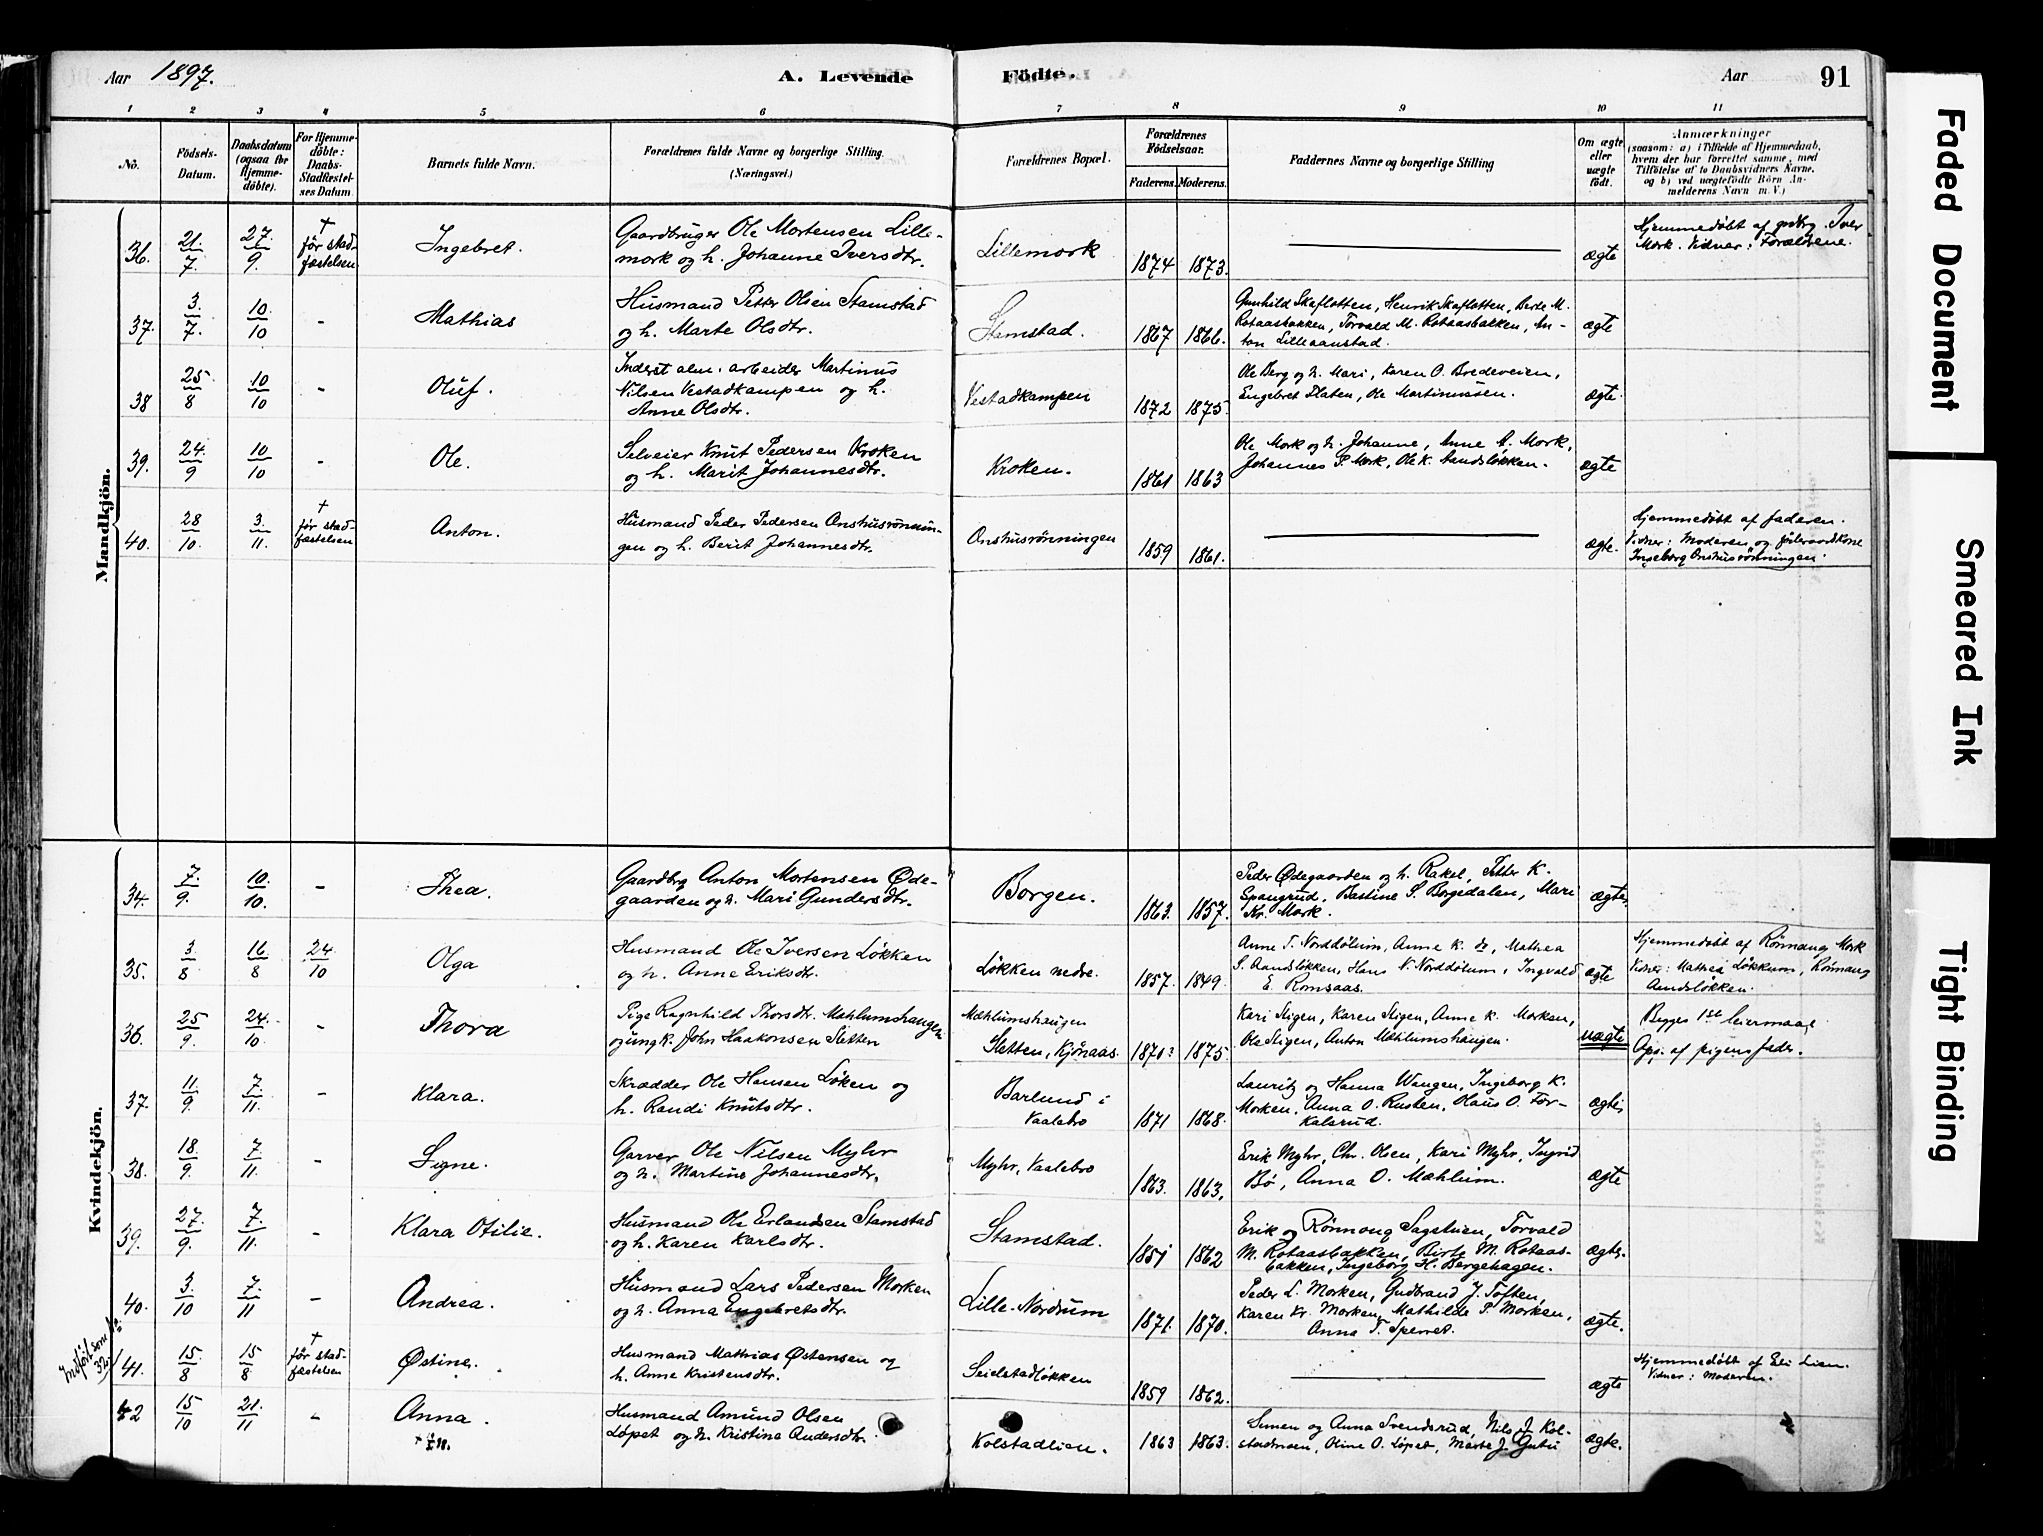 Aar 1897.
A. Levende Födte.
Aar
91
1 2 3 4 5 6 7 8 9 10 11
No.
Födsels-Datum.
Daabsdatum (ogsaa for Hjemmedöbte).
For Hjemmedöbte: Daabs-Stadfæstelses Datum
Barnets fulde Navn.
Forældrenes fulde Navne og borgerlige Stilling. (Næringsvei.)
Forældrenes Bopæl.
Forældrenes Födselsaar.
Faderens. Moderens.
Faddernes Navne og borgerlige Stilling
Om ægte eller uægte födt.
Anmærkninger
(saasom: a) i Tilfælde af Hjemmedaab, hvem der har forrettet samme, med Tilföielse af to Daabsvidners Navne, og b) ved uægtefödte Börn Anmelderens Navn m. V.)
Mandkjön.
36. 21/7. 27/9. † før stadfæstelsen
Ingebret.
Gaardbruger Ole Mortensen Lille-
mork og h. Johanne Iversdtr.
Lillemork
1874 1873.
ægte
Hjemmedøbt af grdbr. Iver
Mork. Vidner: Forældrene.
37. 3/7. 10/10 -
Mathias
Husmand Petter Olsen Stamstad
og h. Marte Olsdtr.
Stamstad.
1867 1866.
Gunhild Skaflotten, Henrik Skaflotten, Berte M.
Rotaasbakken, Torvald M. Rotaasbakken, An-
ton Lilleaanstad.
ægte
38 25/8 10/10 -
Oluf.
Inderst alm. arbeider Martinus
Nilsen Vestadkampen og h.
Anne Olsdtr.
Vestadkampen
1872 1875.
Ole Berg og h. Mari, Karen O. Bredeveien,
Engebret Flaten, Ole Martinussen.
ægte.
39. 24./9 10/10 -
Ole.
Selveier Knut Pedersen Kroken
og h. Marit Johannesdtr.
Kroken.
1861 1863
Ole Mork og h. Johanne, Anne A. Mork,
Johannes P. Mork, Ole K. Aandsløkken.
ægte
40. 28/10. 3./11. † før stadfæstelsen
Anton.
Husmand Peder Pedersen Onshusrønnin-
gen og h. Berit Johannesdtr.
Onshusrønningen
1859 1861.
ægte.
Hjemmedøbt af faderen.
Vidner: Moderen og føderaadskone
Ingeborg Onshusrønningen.
Kvindekjön.
34. 7./9. 10./10. -
Thea.
Gaardbrg Anton Mortensen Øde-
gaarden og h. Mari Gundersdtr.
Borgen.
1863. 1857.
Peder Ødegaarden og h. Rakel, Petter K.
Spangrud, Bastine S. Borgedalen, Mari
Kr. Mork.
ægte
35. 3/8 16/8 24./10
Olga
Husmand Ole Iversen Løkken
og h. Anne Eriksdtr.
Løkken nedre.
1857. 1849.
Anne T. Norddølum, Anne K. do, Mathea
S. Aandsløkken, Hans N. Norddølum, Ingvald
E. Romsaas.
ægte
Hjemmedøbt af Rønnaug Mork
Vidner: Mathea Løkkum, Rønnaug
Aandsløkken.
36. 25/9. 24./10. -
Thora
Pige Ragnhild Thorsdtr. Mæhlumshaugen
og ungk. John Haakonsen Sletten
Mæhlumshaugen
Sletten, Kjønaas.
1870? 1875.
Kari Stigen, Karen Stigen, Anne K. Morken,
Ole Stigen, Anton Mæhlumshaugen.
uægte
Begges 1ste leiermaal.
Opg. af pigens fader.
37. 11./9. 7./11. -
Klara.
Skrædder Ole Hansen Løken og
h. Randi Knutsdtr.
Barlund i
Vaalebro
1871 1868.
Lauritz og Hanna Wangen, Ingeborg K.
Morken, Anna O. Rusten, Hans O. For-
kalsrud.
ægte
38. 18./9. 7/11. -
Signe.
Garver Ole Nilsen Myhr
og h. Martine Johannesdtr.
Myhr, Vaalebro
1863. 1863.
Erik Myhr, Chr. Olsen, Kari Myhr, Ingrid
Bø, Anna O. Mæhlum.
ægte
39. 27./9. 7./11. -
Klara Otilie.
Husmand Ole Erlandsen Stamstad
og h. Karen Karlsdtr.
Stamstad.
1851 1862
Erik og Rønnaug Sagstuen, Torvald
M. Rotaasbakken, Birte M. Rotaas-
bakken, Ingeborg H. Bergehagen.
ægte.
40. 3./10 7./11 -
Andrea.
Husmand Lars Pedersen Morken
og h. Anna Engebretsdtr.
Lille-Nordrum
1871. 1870.
Peder L. Morken, Gudbrand J. Toften,
Karen Kr. Morken, Mathilde P. Morken,
Anna T. Sperret.
ægte.
Indført som No. 32
41. 15./8 15/8 † før stadfæstelsen
Østine.
Husmand Mathias Østensen og
h. Anne Kristensdtr.
Seielstadløkken
1859 1862.
ægte
Hjemmedøbt af Eli Lien.
Vidner: Moderen.
42 15/10 21./11 -
Anna.
Husmand Amund Olsen
Løpet og h. Kristine Andersdtr.
Kolstadlien.
1863 1863.
Simen og Anna Svendsrud, Nils J. Kol-
stadmoen, Oline O. Løpet, Marte J.
ægte.
Faded Document
Smeared Ink
Tight Binding